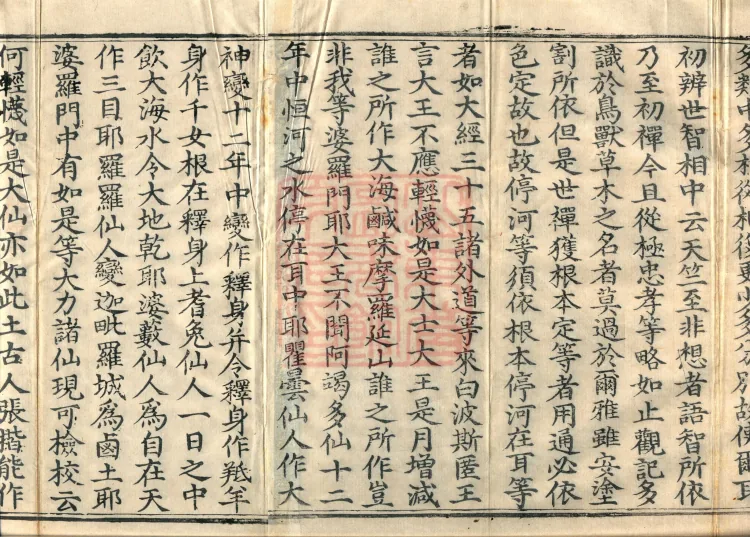 初辨世智相中云天竺至非想者語智所依
乃至初禪今且從極忠孝等略如止觀記多
識於鳥獸草木之名者莫過於爾雅雖安塗
割所依但是世禪獲根本定等者用通必依
色定故也故停河等須依根本停河在耳等
者如大經三十五諸外道等來白波斯匿王
言大王不應輕懱如是大士大王是月增減
誰之所作大海鹹味摩羅延山誰之所作豈
非我等婆羅門耶大王不聞阿竭多仙十二
年中恒河之水停在耳中耶瞿曇仙人作大
神變十二年中變作釋身并令釋身作羝羊
身作千女根在釋身上耆兔仙人一日之中
飲大海水令大地乾耶婆藪仙人為自在天
作三目耶羅羅仙人變迦毗羅城為鹵土耶
婆羅門中有如是等大力諸仙現可檢校云
何輕懱如是大仙亦如此土古人張楷能作